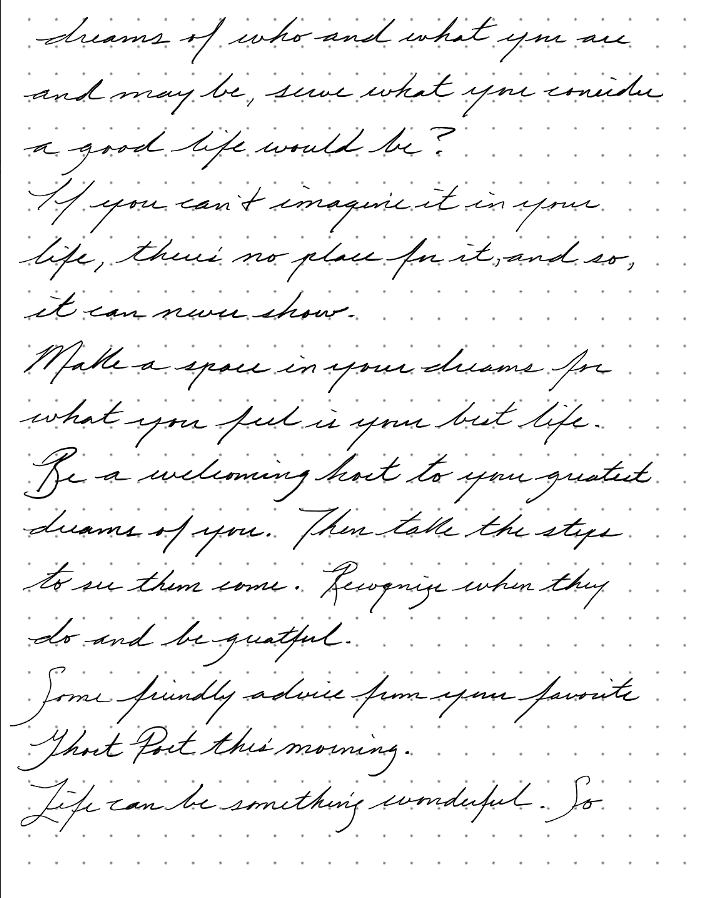 dreams of who and what you are
and may be, serve what you consider
a good life would be?
If you can't imagine it in your
life, there's no place for it, and so,
it can never show.
Make a space in your dreams for
what you feel is your best life.
Be a welcoming host to your greatest
dreams of you. Then take the steps
to see them come. Recognize when they
do and be grateful.
Some friendly advice from your favorite
Ghost Poet this morning.
Life can be something wonderful. So